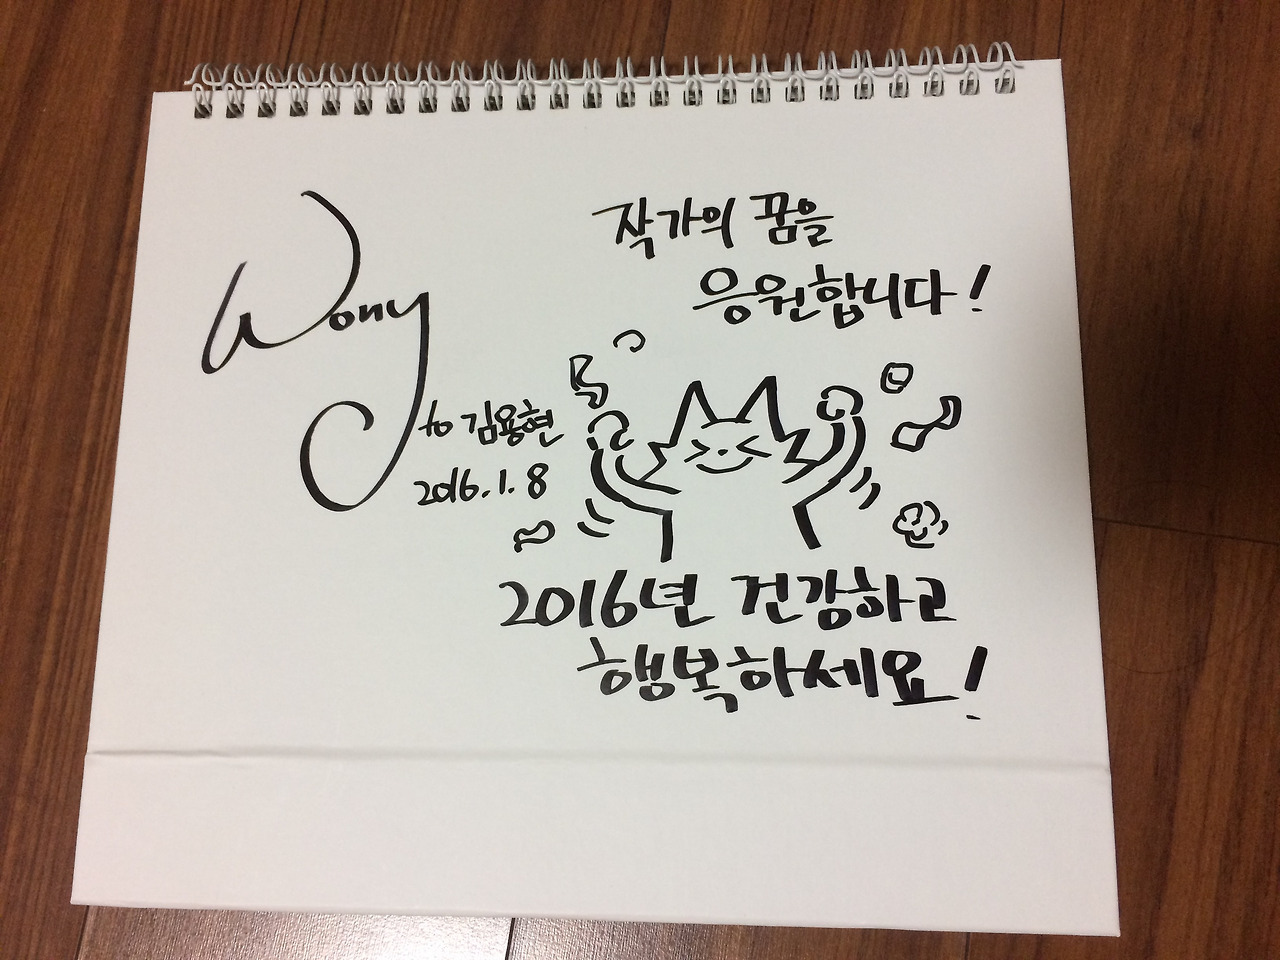 Wony
작가의 꿈을
응원합니다!
to 김용현
2016.1.8
2016년 건강하고
행복하세요!